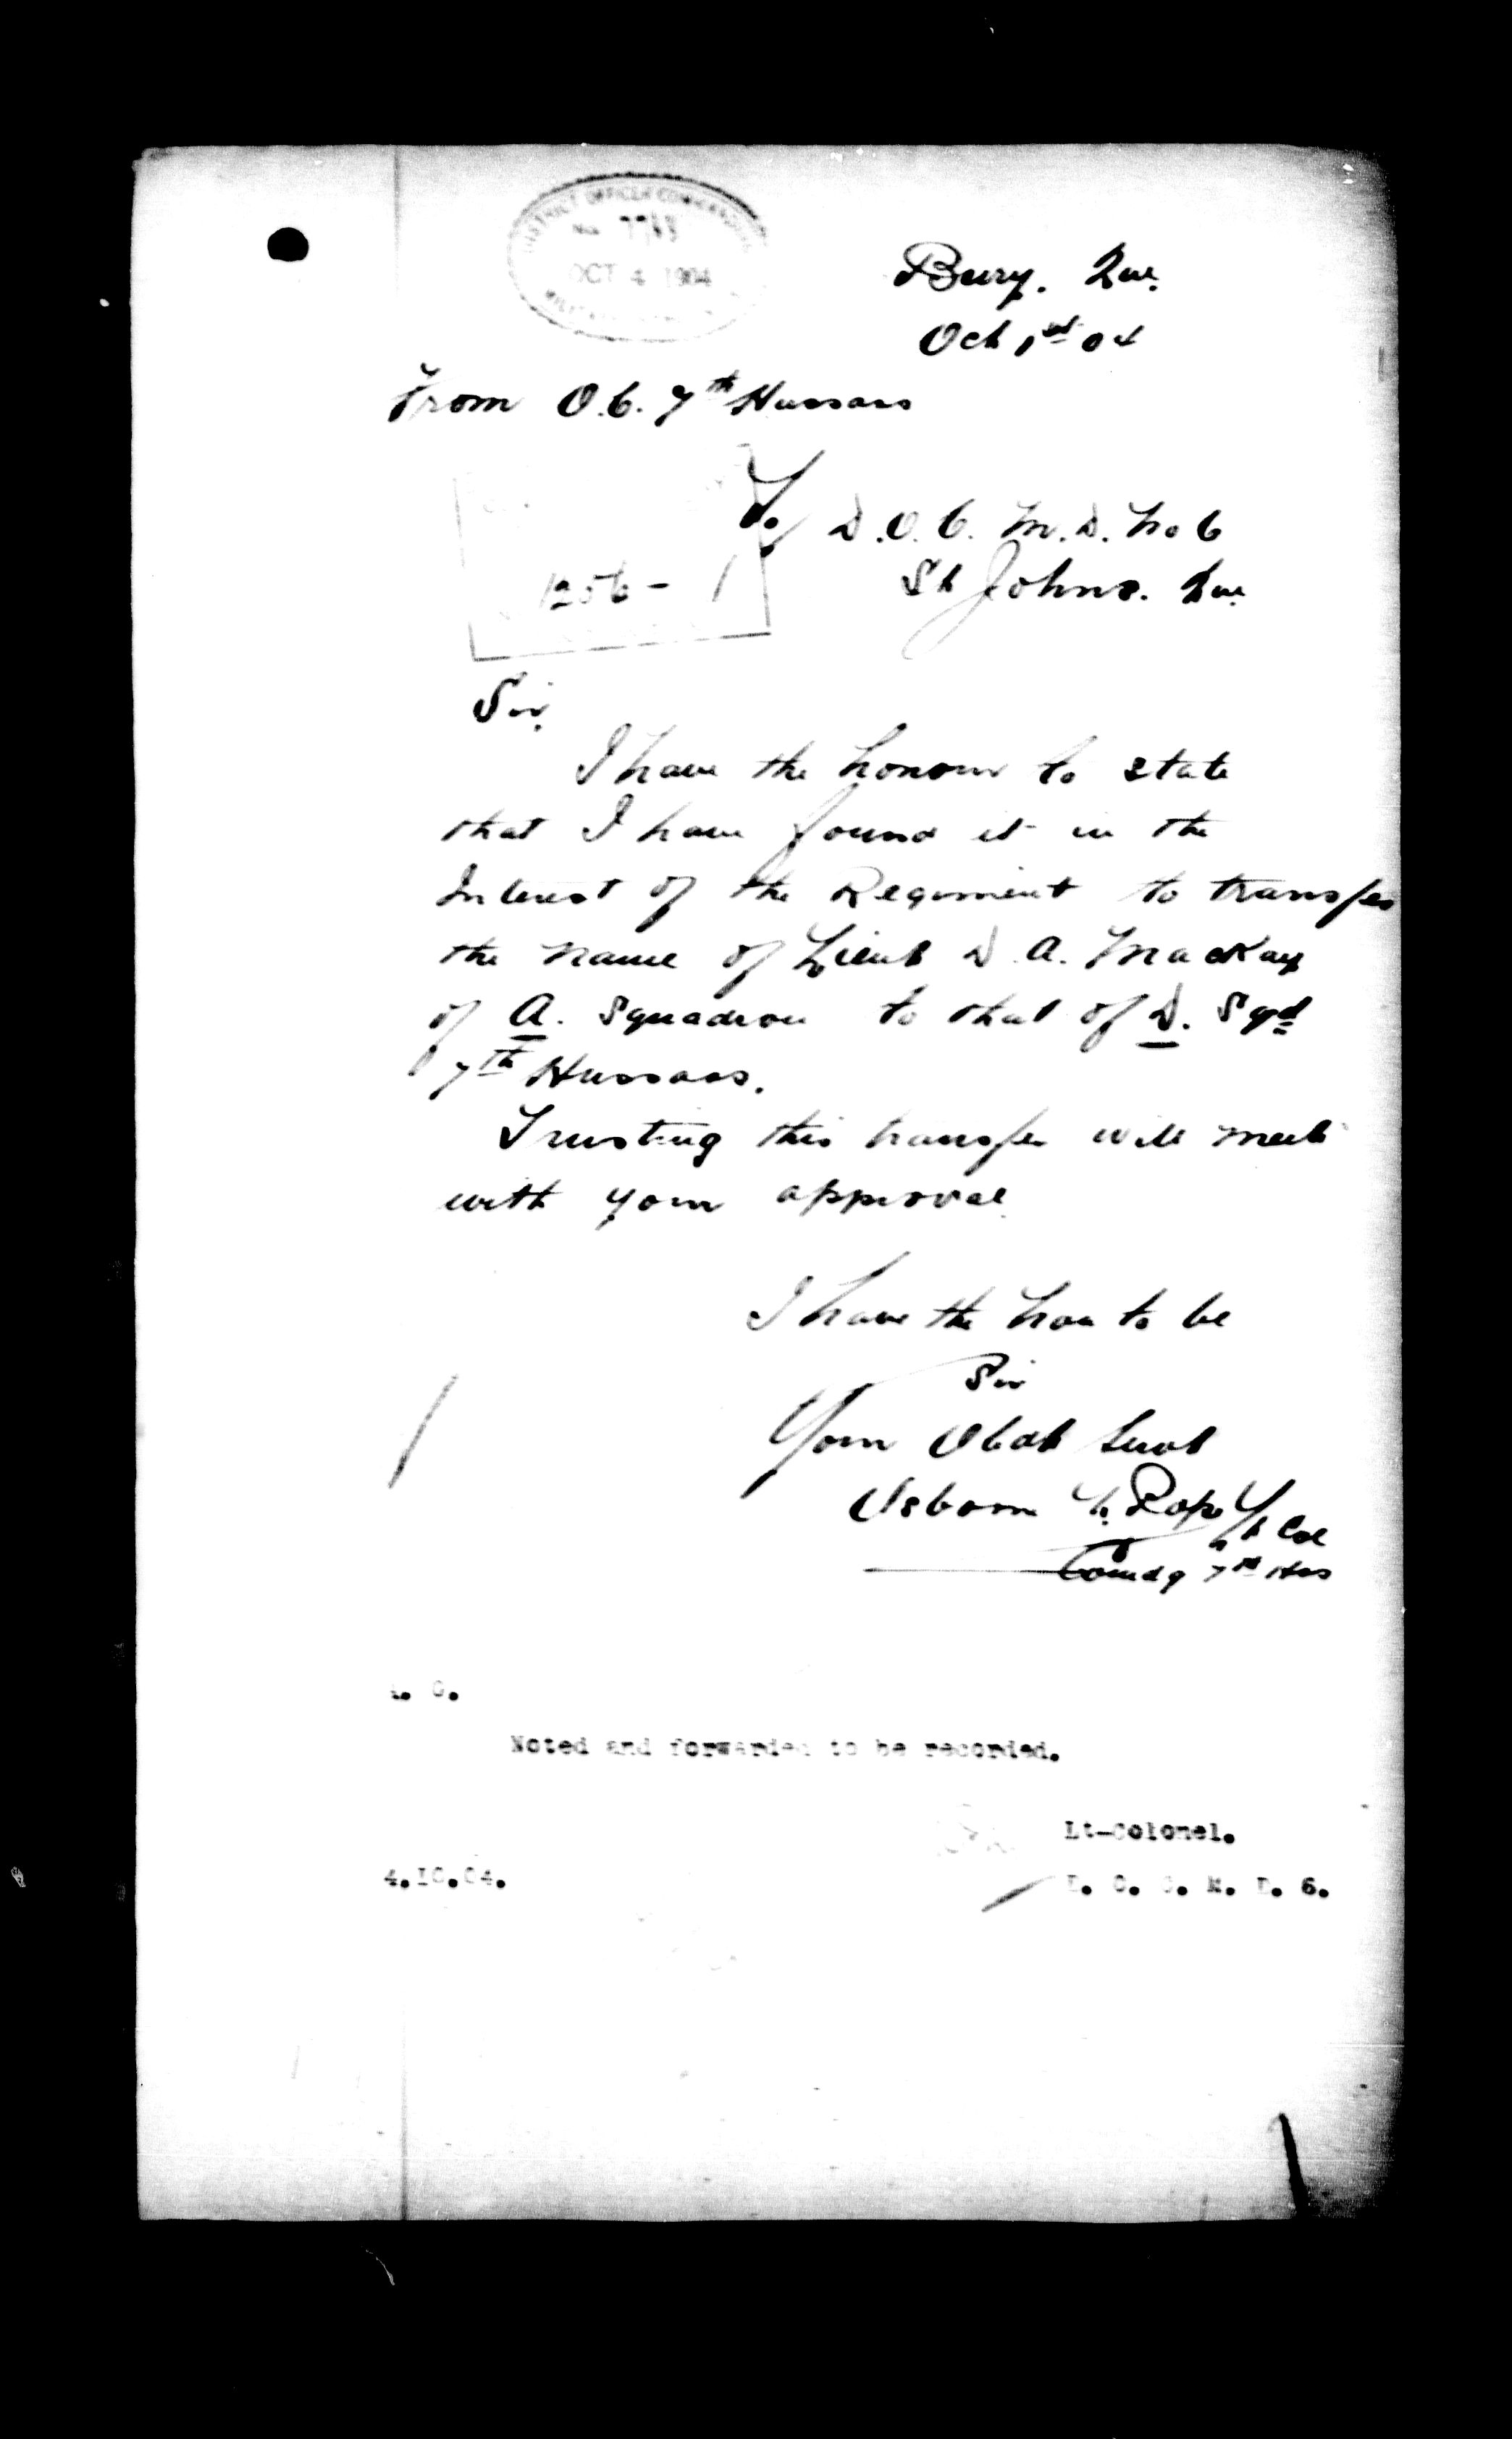 DISTRICT OFFICER COMMANDING
No. 7743
OCT 4 1904
Bury. Que.
Oct 1st 04
From O.C. 7th Hussars
To D.O.C. M.D. No 6
1256-1
St Johns. Que.
Sir.
I have the honour to state
that I have found it in the
Interest of the Regiment to transfer
the name of Lieut D. A. MacKay
of A. Squadron to that of D. Sqd
7th Hussars.
Trusting this transfer will meet
with your approval.
I have the hon to be
Sir
Your Obdt Servt
Lt Col
Comdg 7th Hrs
Noted and forwarded to be recorded.
Lt-Colonel.
4.10.04.
D. O. C. M. D. 6.